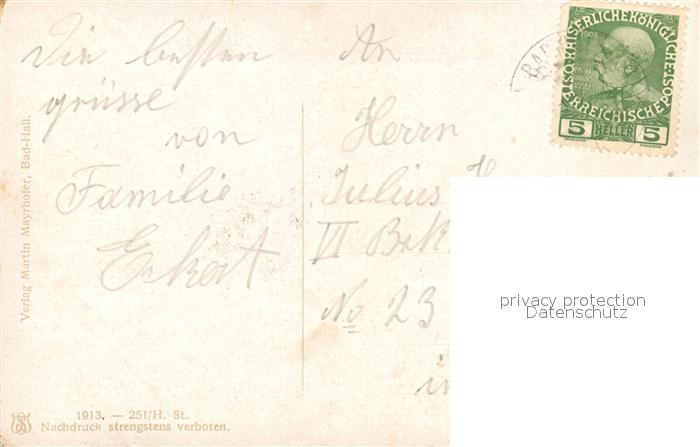 Die besten
grüsse
von
Familie
Ekart
An
Herrn
Julius H
VI
No 23
in
BAD
1908
KAISERLICHE KÖNIGLICHE
ÖSTERREICHISCHE POST
5 HELLER 5
Verlag Martin Mayrhofer, Bad-Hall.
1913. — 251/H. St.
Nachdruck strengstens verboten.
privacy protection
Datenschutz